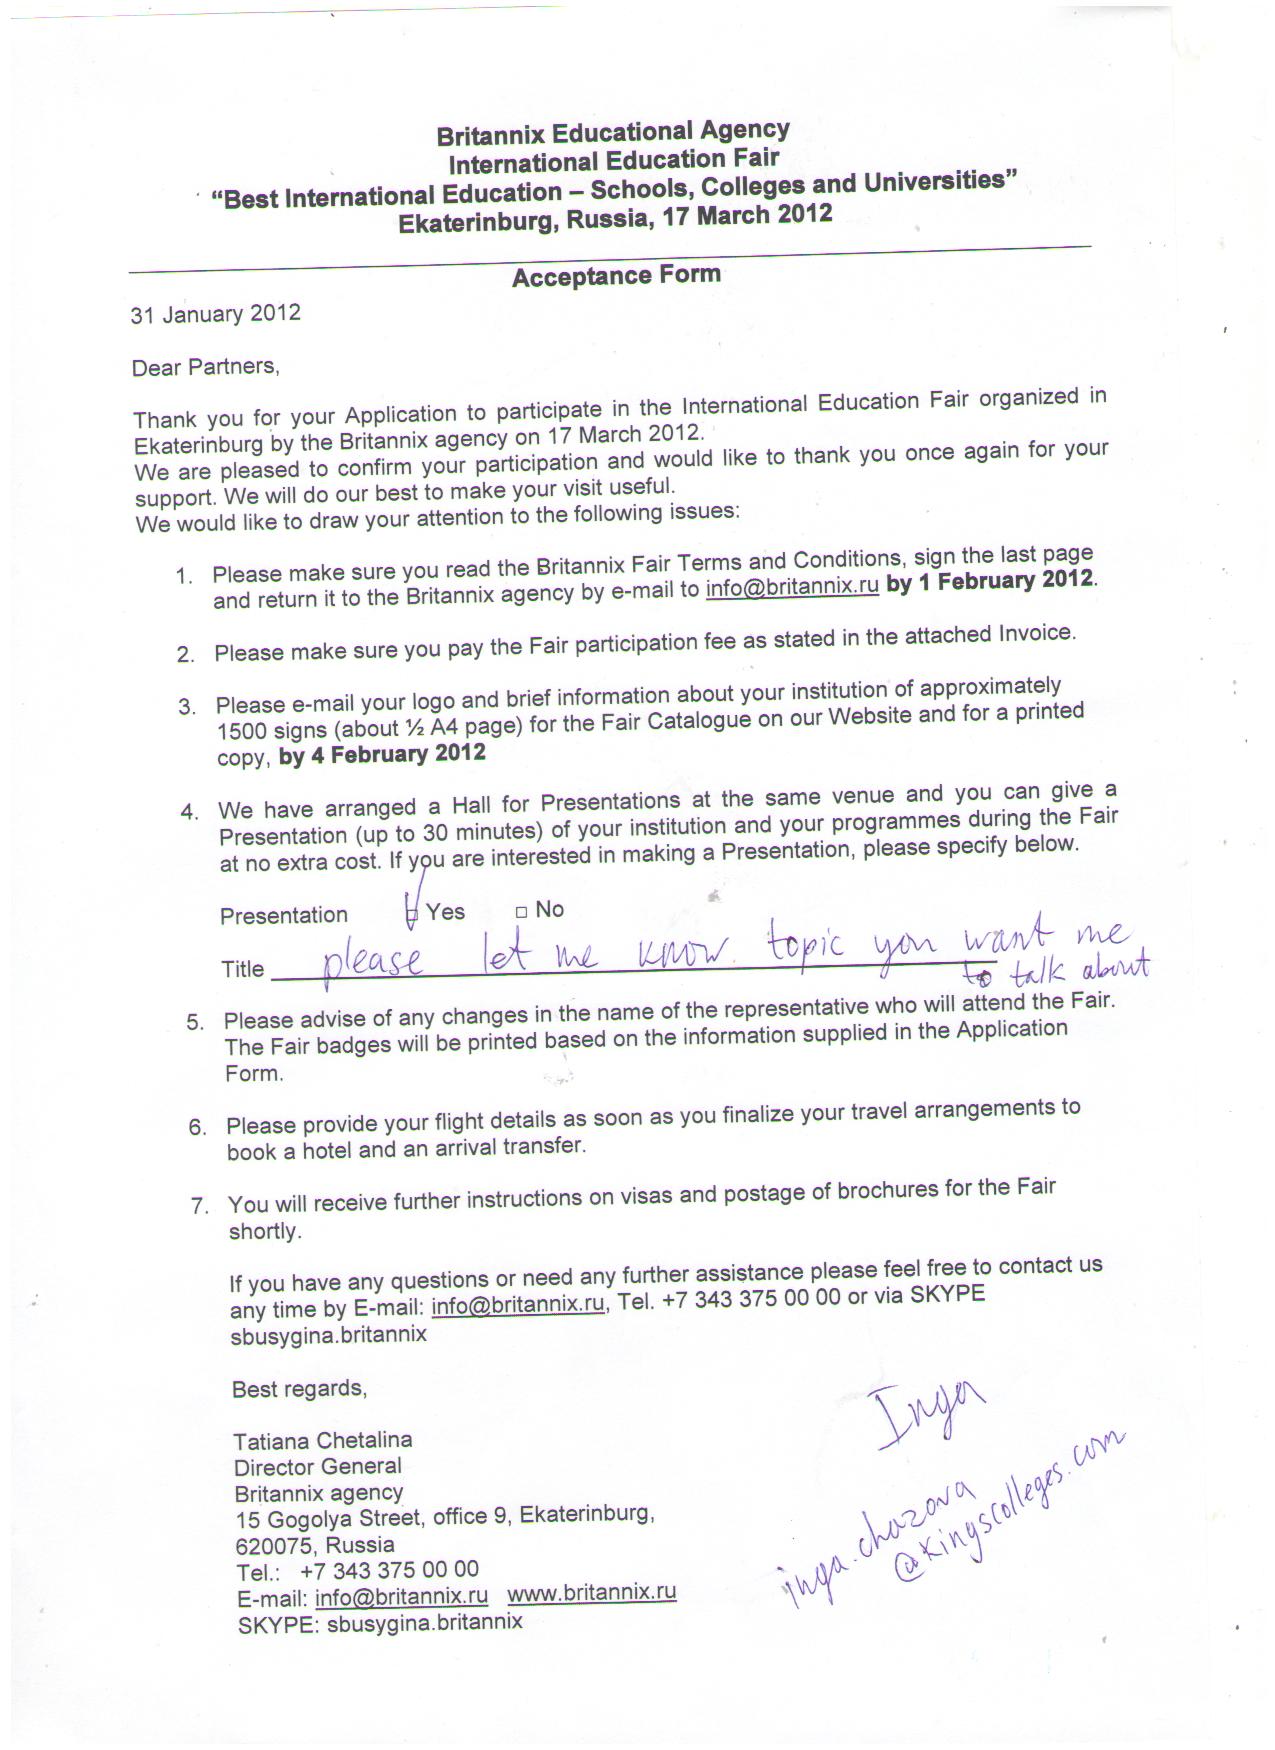 Britannix Educational Agency
International Education Fair
“Best International Education – Schools, Colleges and Universities”
Ekaterinburg, Russia, 17 March 2012
Acceptance Form
31 January 2012
Dear Partners,
Thank you for your Application to participate in the International Education Fair organized in
Ekaterinburg by the Britannix agency on 17 March 2012.
We are pleased to confirm your participation and would like to thank you once again for your
support. We will do our best to make your visit useful.
We would like to draw your attention to the following issues:
1. Please make sure you read the Britannix Fair Terms and Conditions, sign the last page
and return it to the Britannix agency by e-mail to info@britannix.ru by 1 February 2012.
2. Please make sure you pay the Fair participation fee as stated in the attached Invoice.
3. Please e-mail your logo and brief information about your institution of approximately
1500 signs (about ½ A4 page) for the Fair Catalogue on our Website and for a printed
copy, by 4 February 2012
4. We have arranged a Hall for Presentations at the same venue and you can give a
Presentation (up to 30 minutes) of your institution and your programmes during the Fair
at no extra cost. If you are interested in making a Presentation, please specify below.
Presentation ☑ Yes □ No
Title please let me know topic you want me
to talk about
5. Please advise of any changes in the name of the representative who will attend the Fair.
The Fair badges will be printed based on the information supplied in the Application
Form.
6. Please provide your flight details as soon as you finalize your travel arrangements to
book a hotel and an arrival transfer.
7. You will receive further instructions on visas and postage of brochures for the Fair
shortly.
If you have any questions or need any further assistance please feel free to contact us
any time by E-mail: info@britannix.ru, Tel. +7 343 375 00 00 or via SKYPE
sbusygina.britannix
Best regards,
Tatiana Chetalina
Director General
Britannix agency
15 Gogolya Street, office 9, Ekaterinburg,
620075, Russia
Tel.: +7 343 375 00 00
E-mail: info@britannix.ru www.britannix.ru
SKYPE: sbusygina.britannix
Inga
inga.chazova
@kingscolleges.com